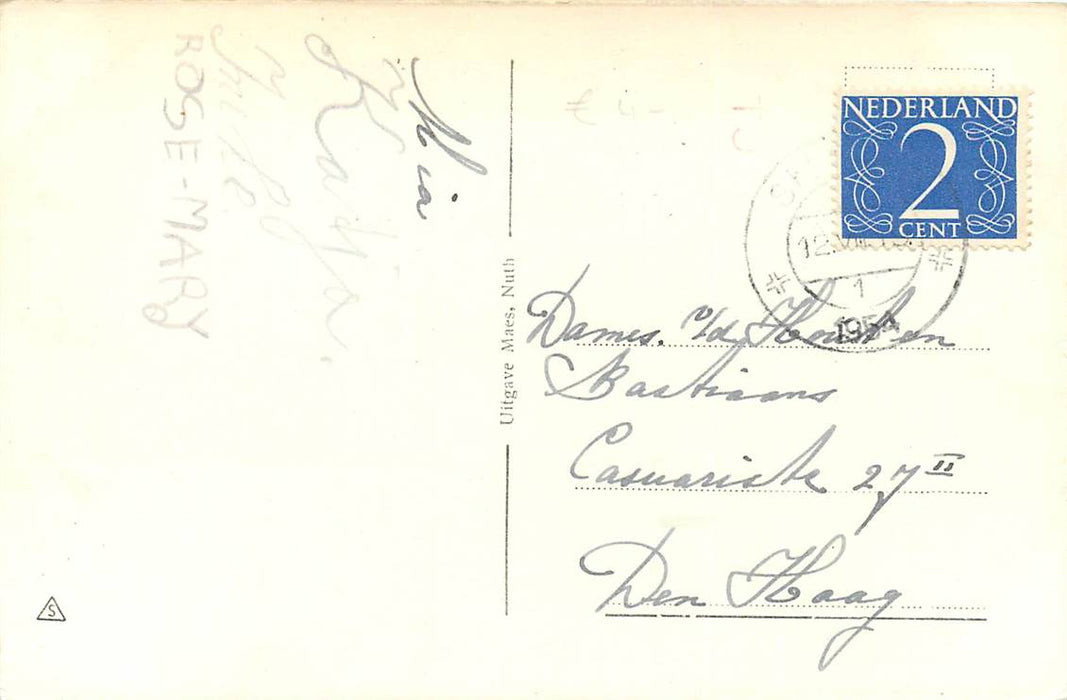 Mia
Katja.
ROSE-MARY
€ 4-
Uitgave Maes, Nuth
NEDERLAND
2
CENT
12. VIII.
1
1954
Dames. v/d Hout en
Bastiaans
Casuariste 27 II
Den Haag
S